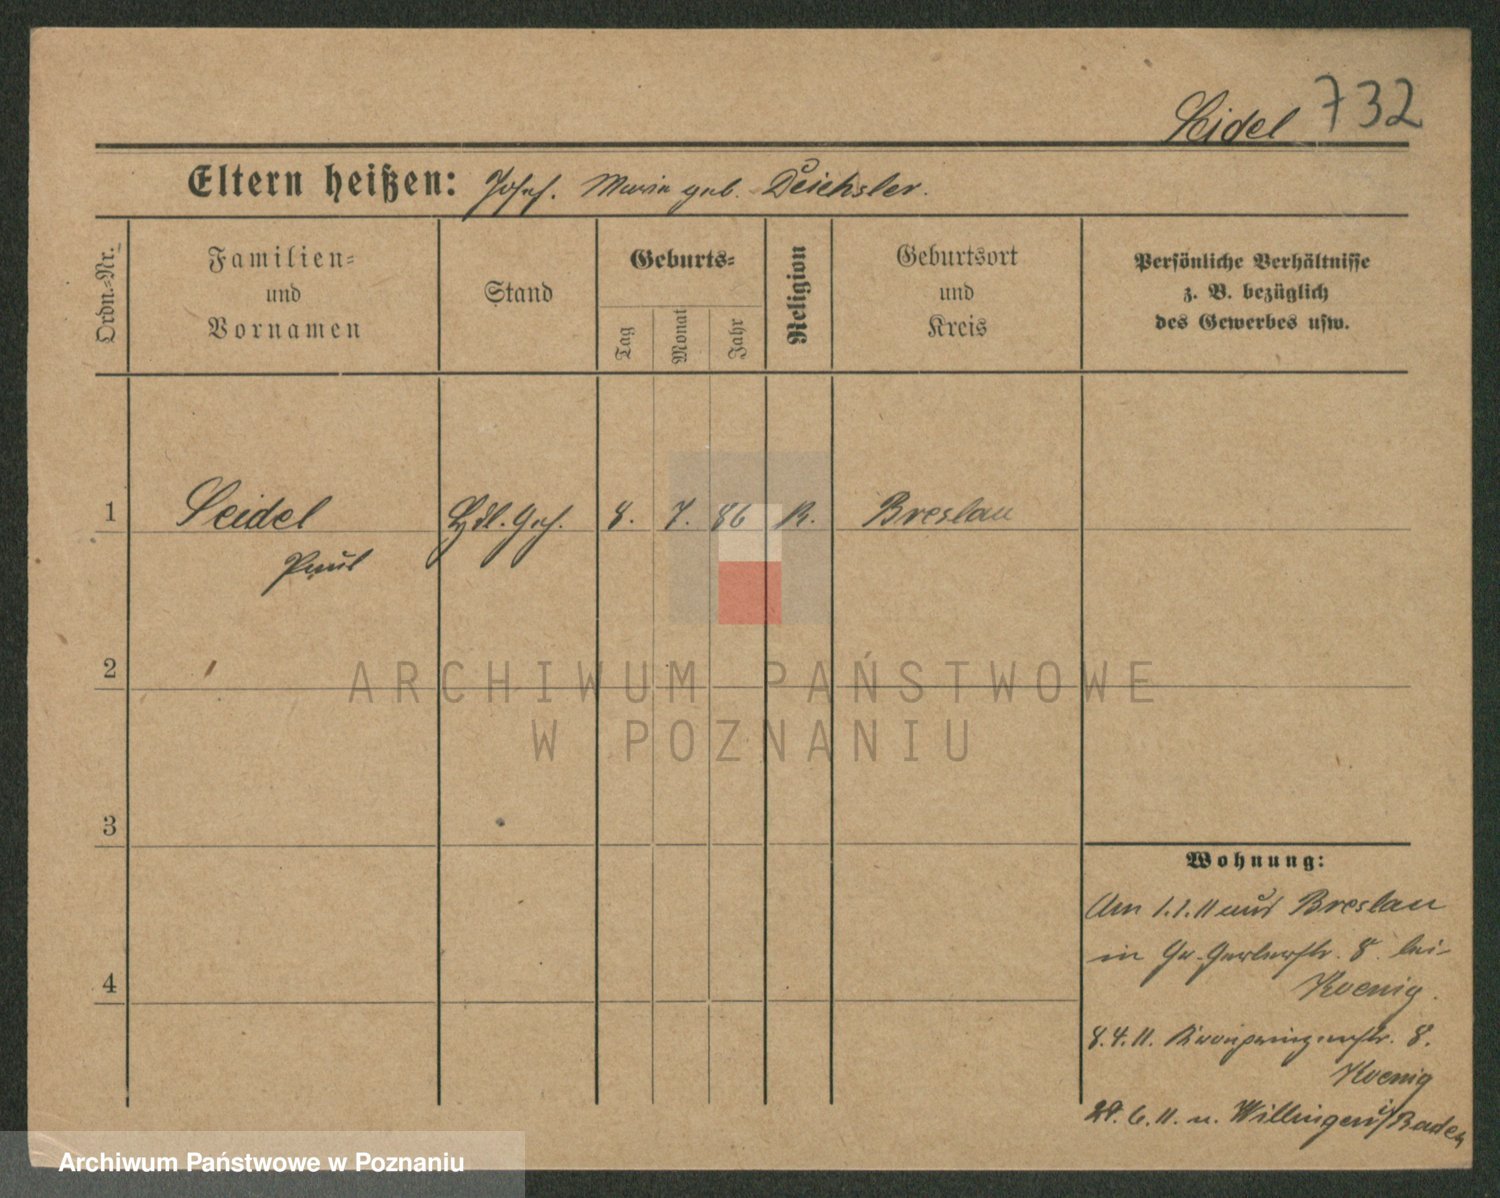 Seidel 732
Eltern heißen: Josef. Marie geb. Deichsler.
Ordn.-Nr.
Familien-
und
Vornamen
Stand
Geburts-
Tag
Monat
Jahr
Religion
Geburtsort
und
Kreis
Persönliche Verhältnisse
z. B. bezüglich
des Gewerbes usw.
1 Seidel Hdl. Geh. 8. 7. 86 K. Breslau
Paul
2
3
4
Wohnung:
Am 1.1.11 aus Breslau
in Gr. Gerberstr. 8. bei
Koenig.
8.4.11. Kronprinzenstr. 8.
Koenig
29. 6. 11. n. Willingen i/Baden
ARCHIWUM PAŃSTWOWE
W POZNANIU
Archiwum Państwowe w Poznaniu